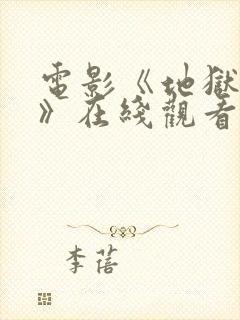 電影《地獄
》在綫觀看
李蓓